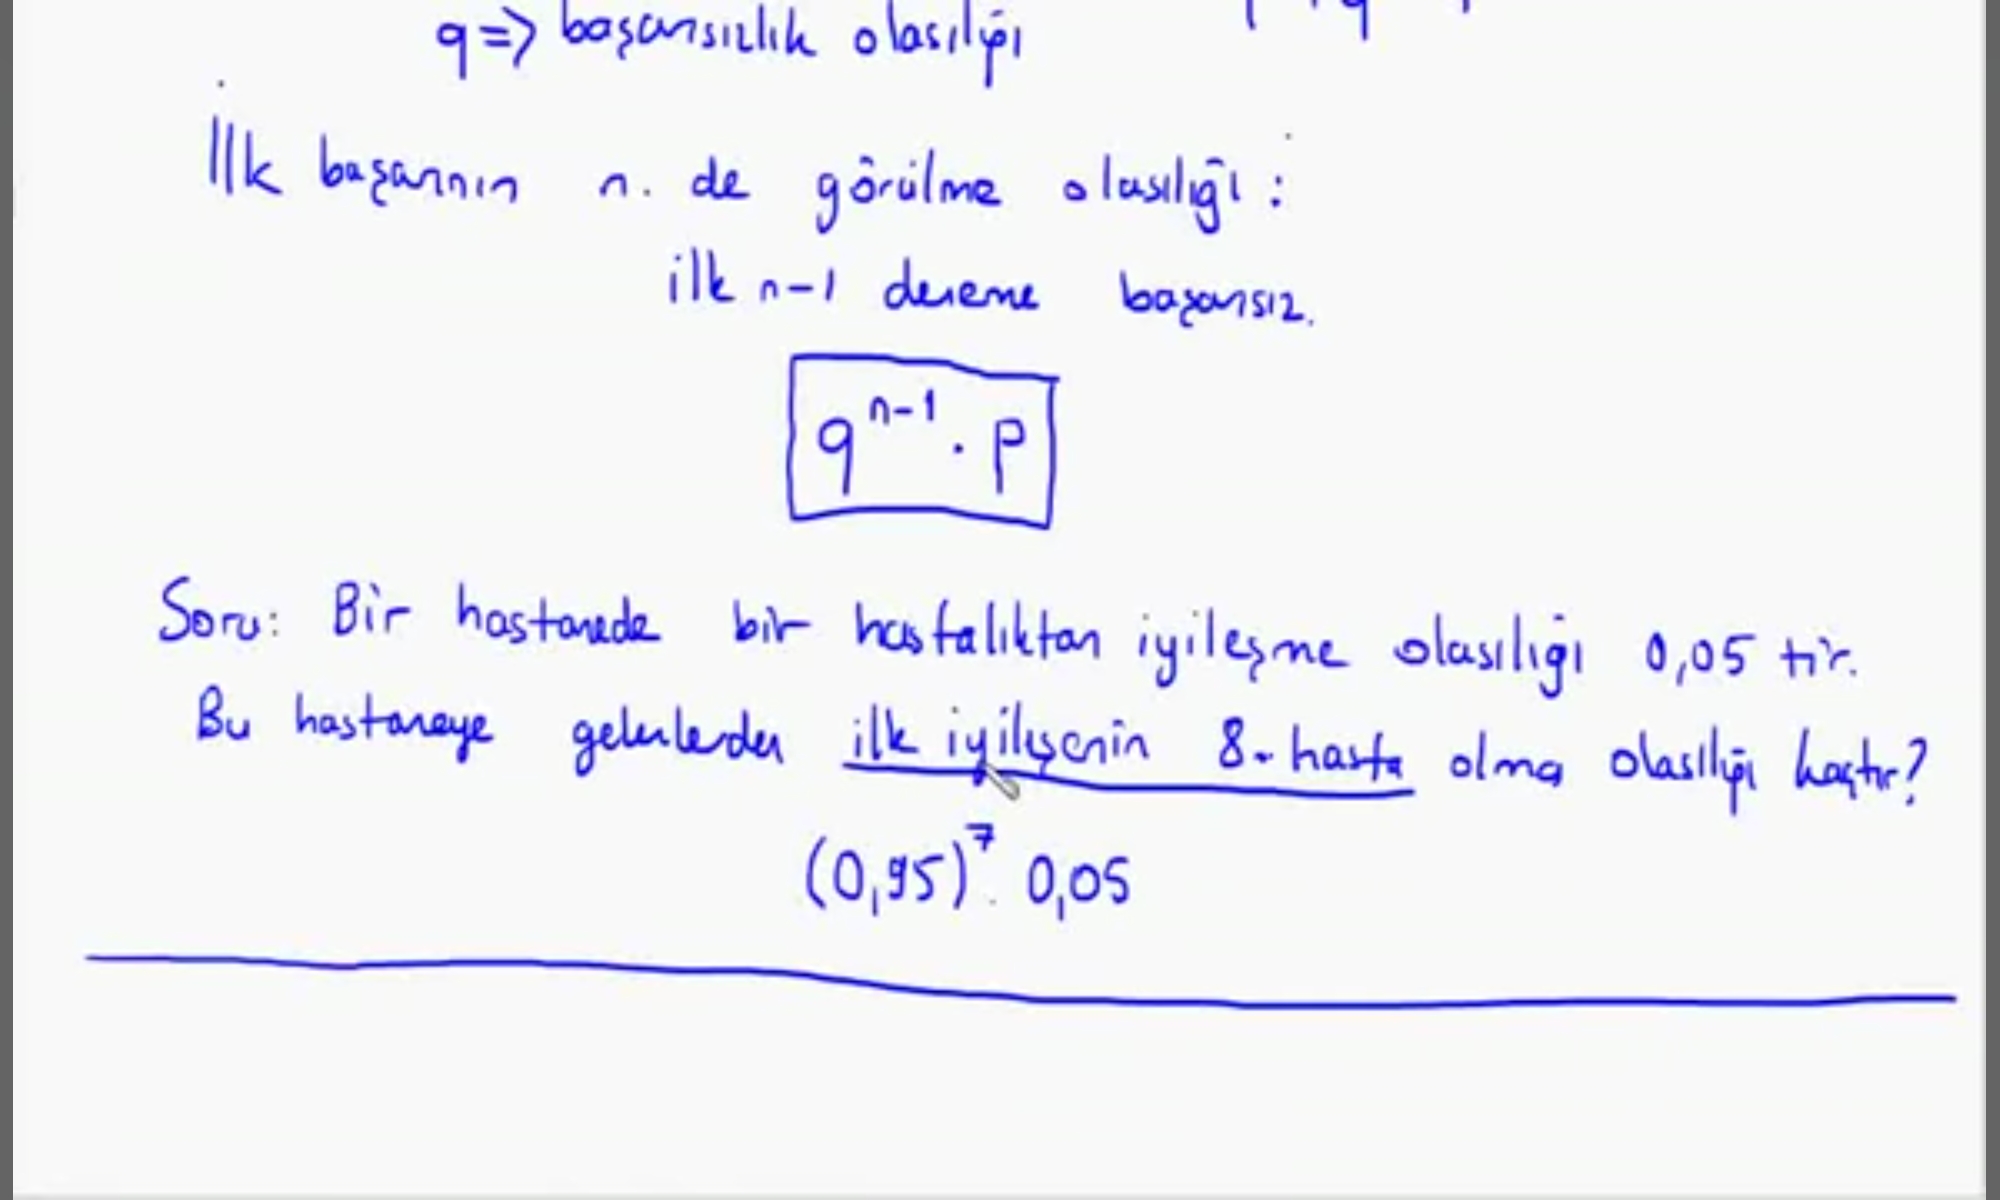 q => başarısızlık olasılığı
İlk başarının n. de görülme olasılığı :
ilk n-1 deneme başarısız.
q^{n-1} . p
Soru: Bir hastanede bir hastalıktan iyileşme olasılığı 0,05 tir.
Bu hastaneye gelenlerden ilk iyileşenin 8. hasta olma olasılığı kaçtır?
(0,95)^7 . 0,05